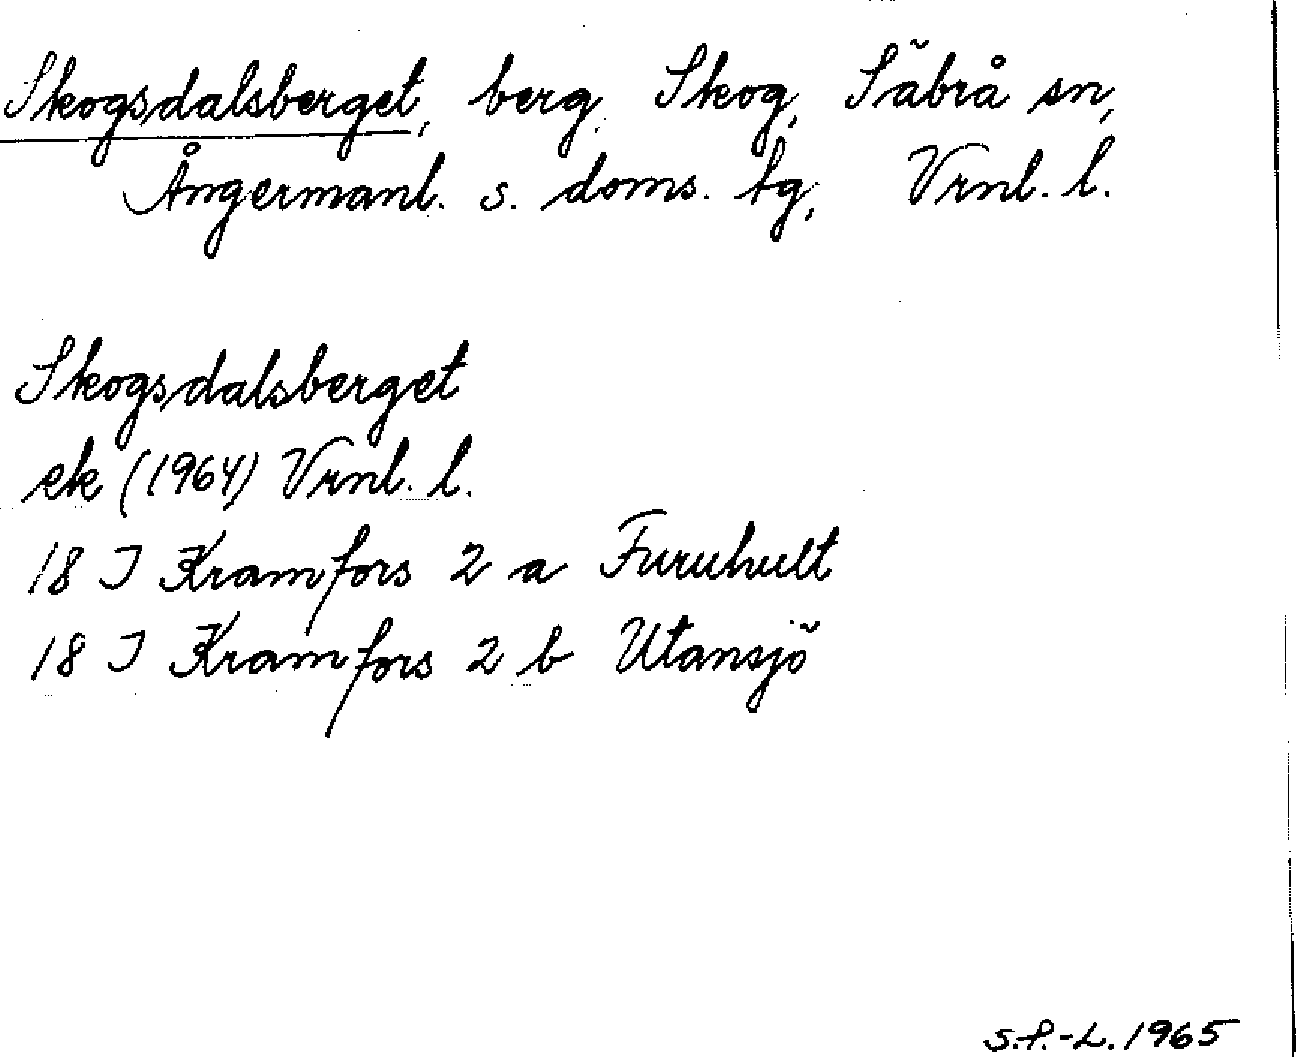 Skogsdalsberget, berg, Skog, Säbrå sn,
Ångermanl. s. doms. tg, Vrnl. l.
Skogsdalsberget
ek (1964) Vrnl. l.
18 I Kramfors 2 a Furuhult
18 I Kramfors 2 b Utansjö
S.F.-L. 1965